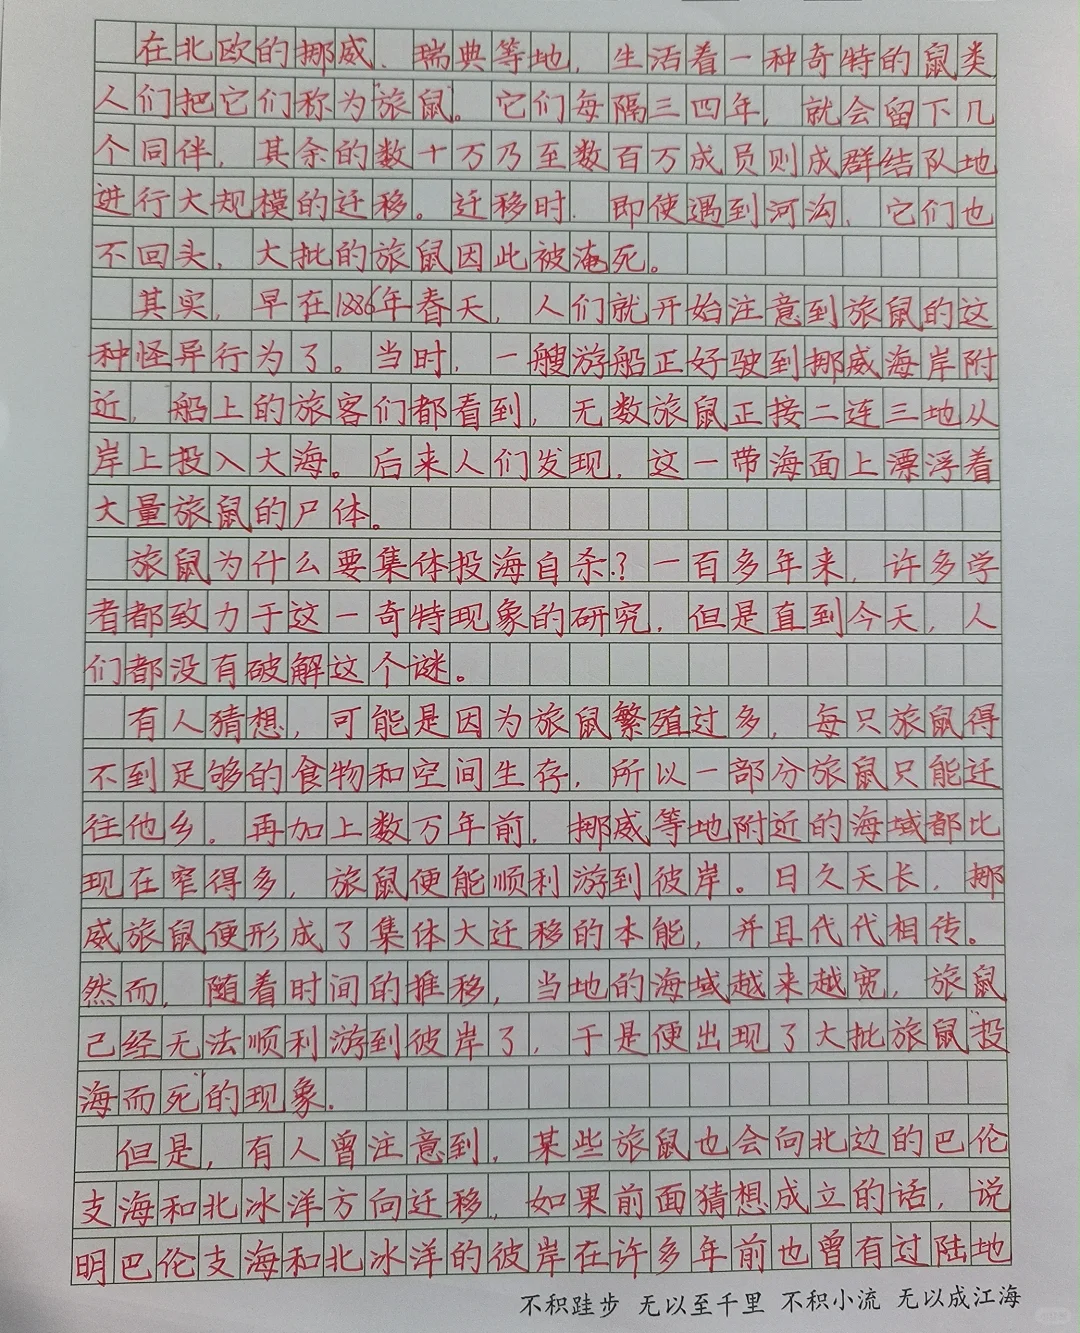 在北欧的挪威、瑞典等地，生活着一种奇特的鼠类
人们把它们称为“旅鼠”。它们每隔三四年，就会留下几
个同伴，其余的数十万乃至数百万成员则成群结队地
进行大规模的迁移。迁移时，即使遇到河沟，它们也
不回头，大批的旅鼠因此被淹死。
其实，早在1886年春天，人们就开始注意到旅鼠的这
种怪异行为了。当时，一艘游船正好驶到挪威海岸附
近，船上的旅客们都看到，无数旅鼠正接二连三地从
岸上投入大海。后来人们发现，这一带海面上漂浮着
大量旅鼠的尸体。
旅鼠为什么要集体投海自杀？一百多年来，许多学
者都致力于这一奇特现象的研究，但是直到今天，人
们都没有破解这个谜。
有人猜想，可能是因为旅鼠繁殖过多，每只旅鼠得
不到足够的食物和空间生存，所以一部分旅鼠只能迁
往他乡。再加上数万年前，挪威等地附近的海域都比
现在窄得多，旅鼠便能顺利游到彼岸。日久天长，挪
威旅鼠便形成了集体大迁移的本能，并且代代相传。
然而，随着时间的推移，当地的海域越来越宽，旅鼠
已经无法顺利游到彼岸了，于是便出现了大批旅鼠“投
海而死”的现象。
但是，有人曾注意到，某些旅鼠也会向北边的巴伦
支海和北冰洋方向迁移。如果前面猜想成立的话，说
明巴伦支海和北冰洋的彼岸在许多年前也曾有过陆地
不积跬步 无以至千里 不积小流 无以成江海